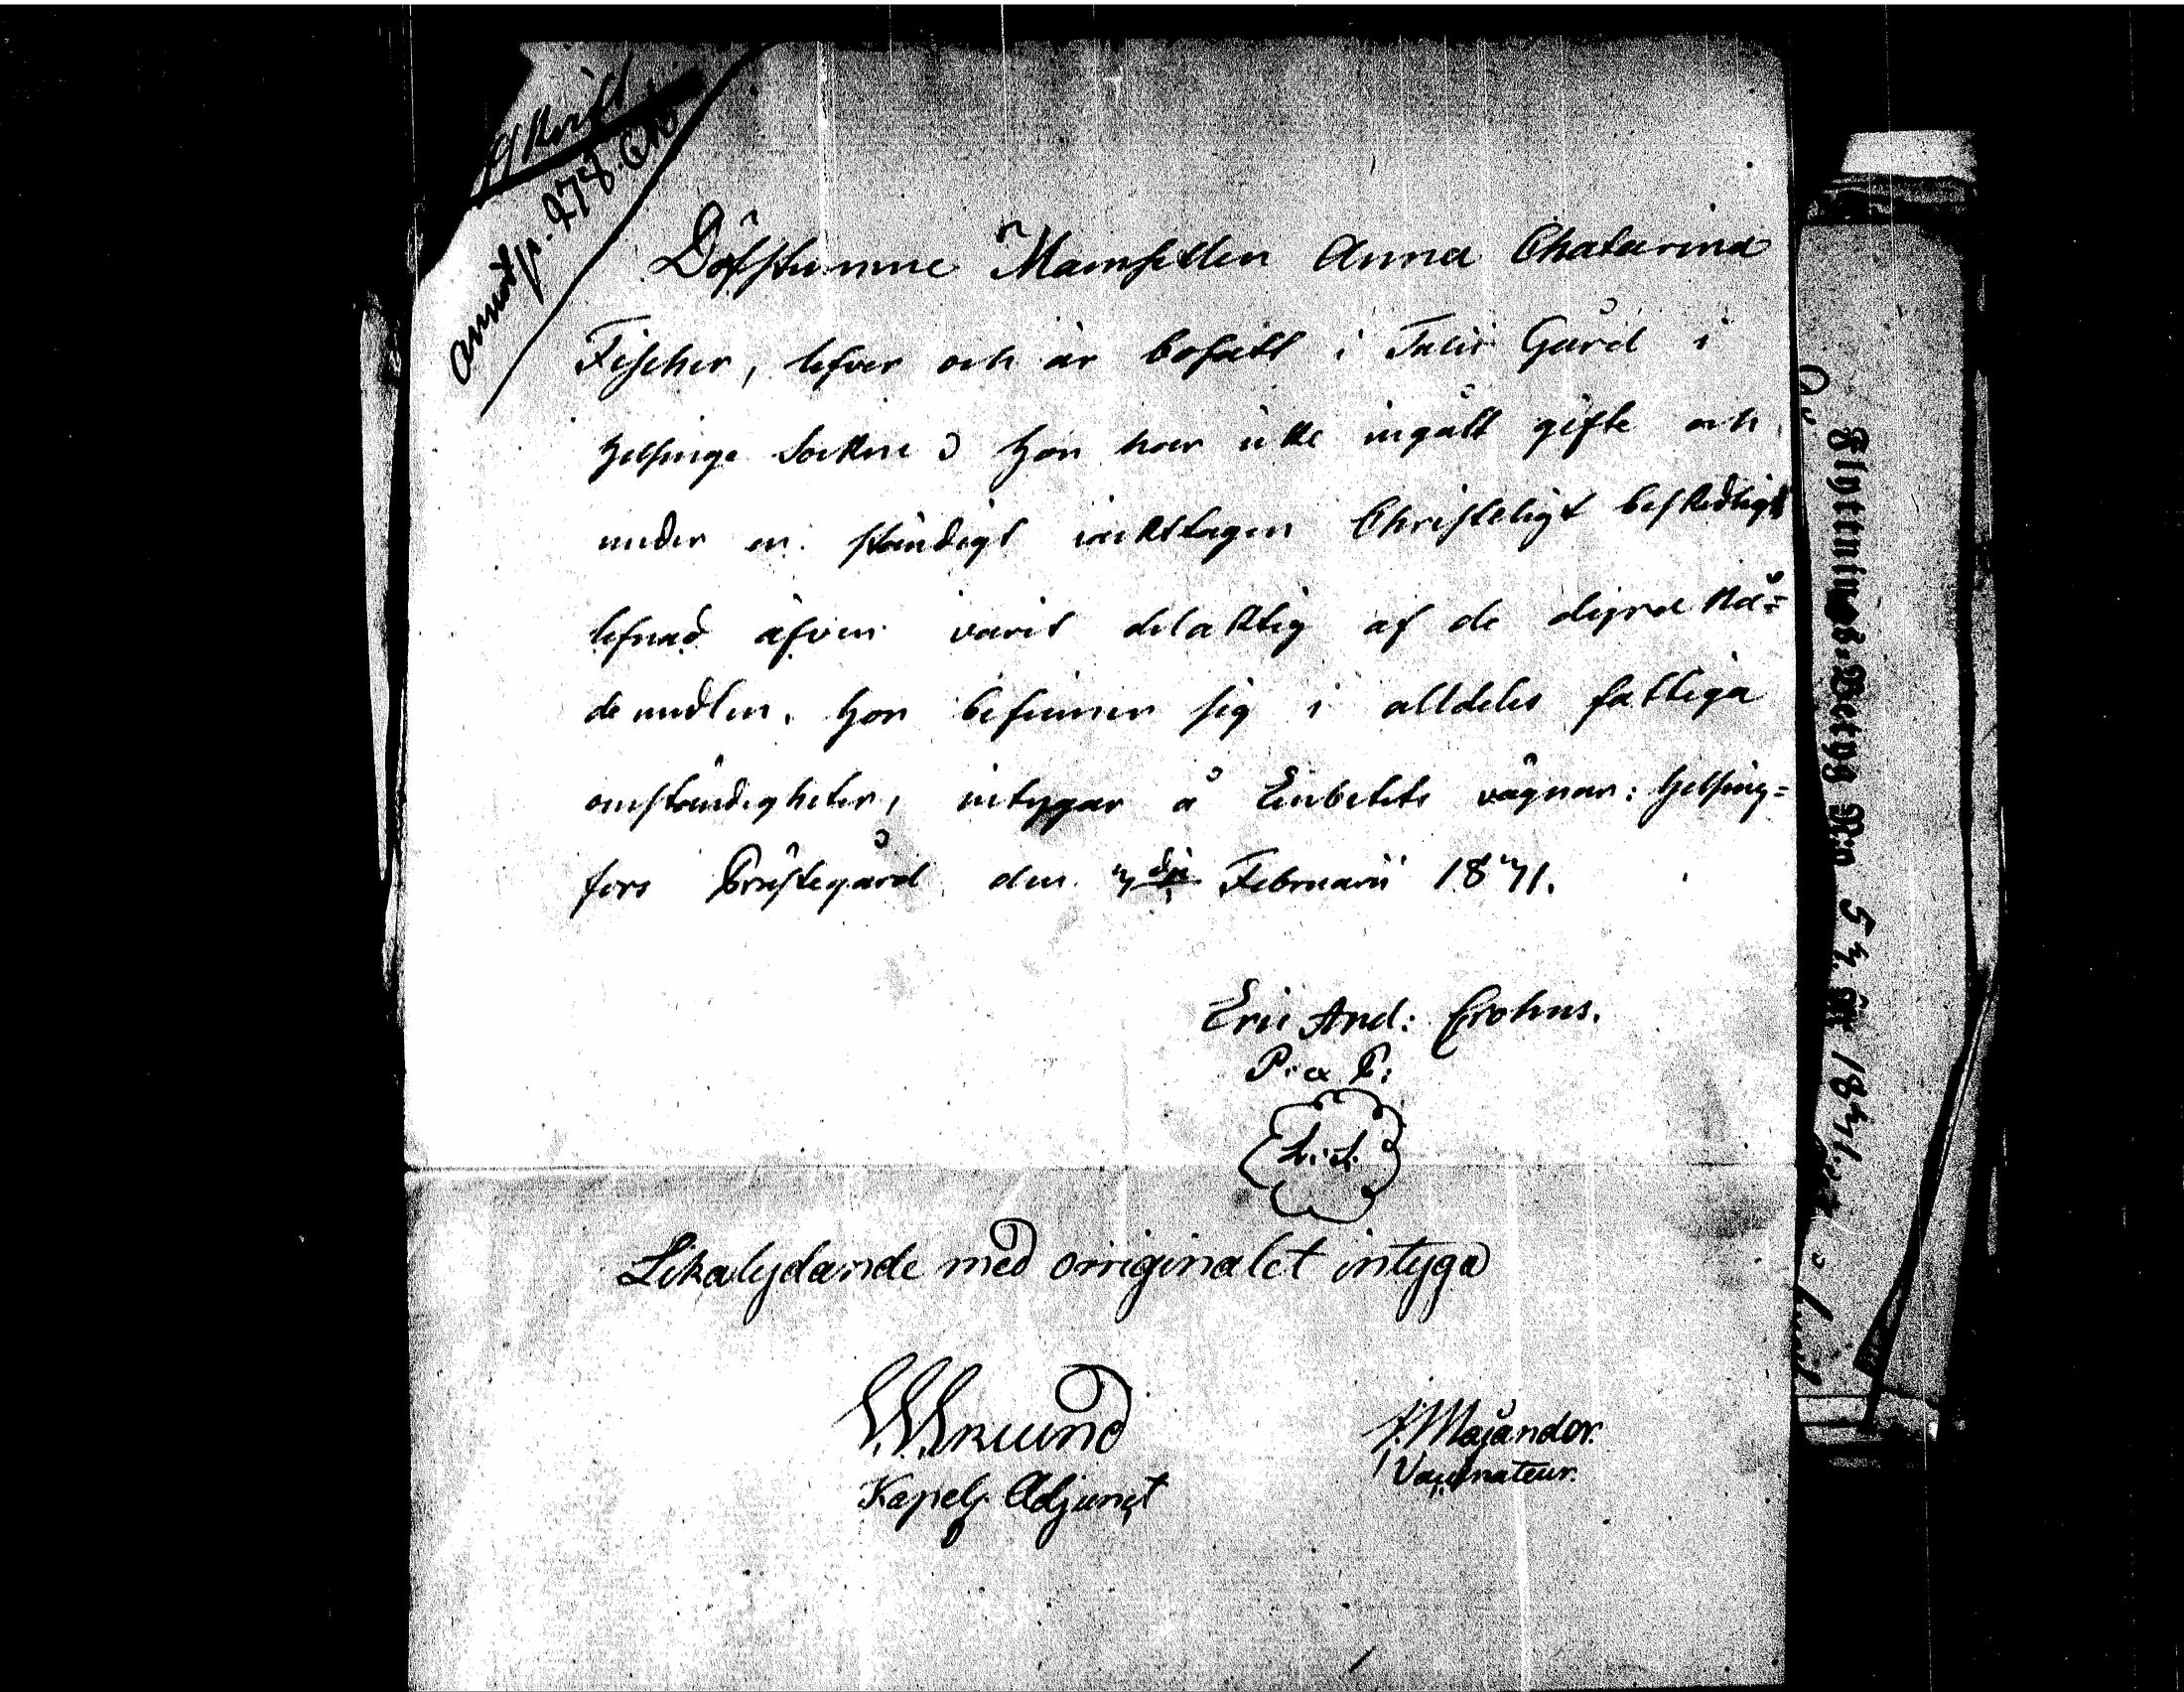 Afskrift
Döfstumme Mamsellen Anna Chatarina
Fischer, lefver och är bosatt i Tali Gård i
Helsinge Sockne; Hon har icke ingått gifte och
under en ständigt iakttagen Christeligt beskedligt
lefnad äfven varit delaktig af de dyra nå=
demedlen. Hon befinner sig i alldeles fattiga
omständigheter, intygar å Embetets vägnar: Helsing=
fors Prästegård den 7de Februarii 1871.
Eric And: Crohns.
P: &
L. S.
Likalydande med orriginalet intyga
Kapels Adjunct
Majander.
Vaccinateur.
Flyttnings-Betyg N:o